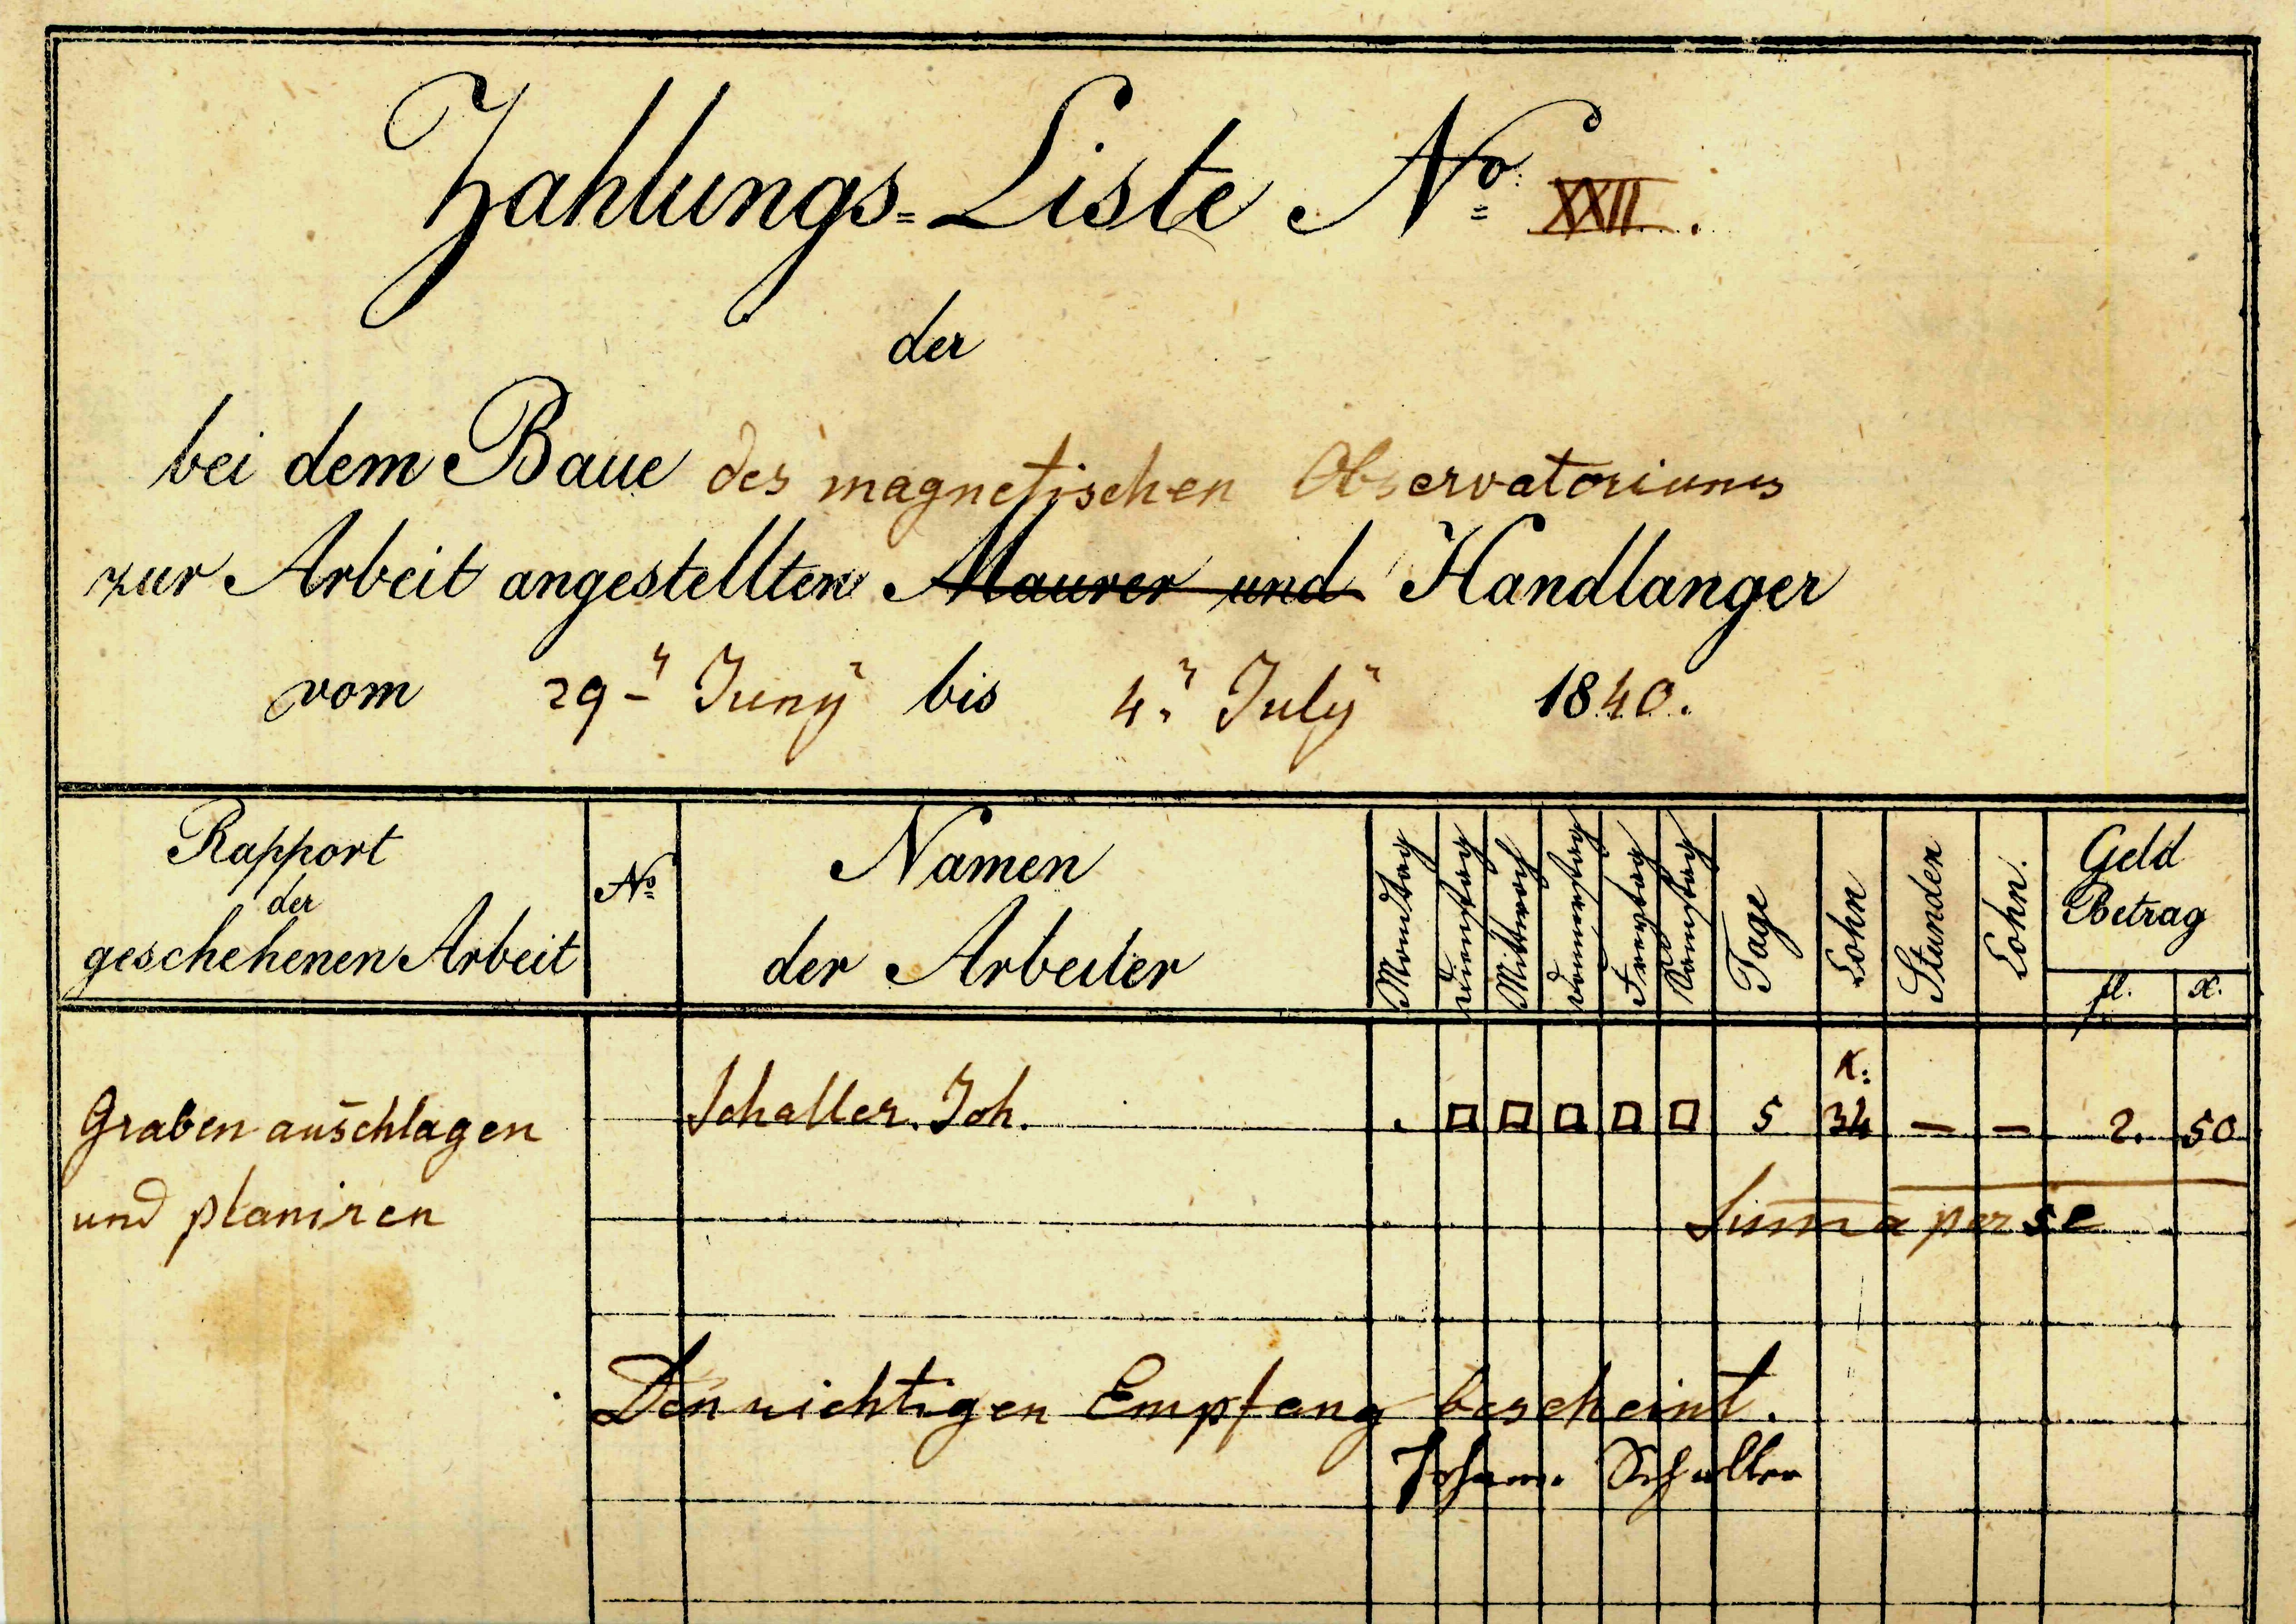 Zahlungs=Liste No XXII.
der
bei dem Baue des magnetischen Observatoriums
zur Arbeit angestellten Maurer und Handlanger
vom 29t Juny bis 4t July 1840.
Rapport
der
geschehenen Arbeit
No
Namen
der Arbeiter
Montag
Dienstag
Mittwoch
Donnerstag
Freytag
Samstag
Tage
Lohn
Stunden
Lohn.
Geld
Betrag
fl. x.
x:
Graben auschlagen Schaller. Joh. . □ □ □ □ □ 5 34 — — 2. 50
und planiren Suma per se
Den richtigen Empfang bescheint.
Johann Schaller